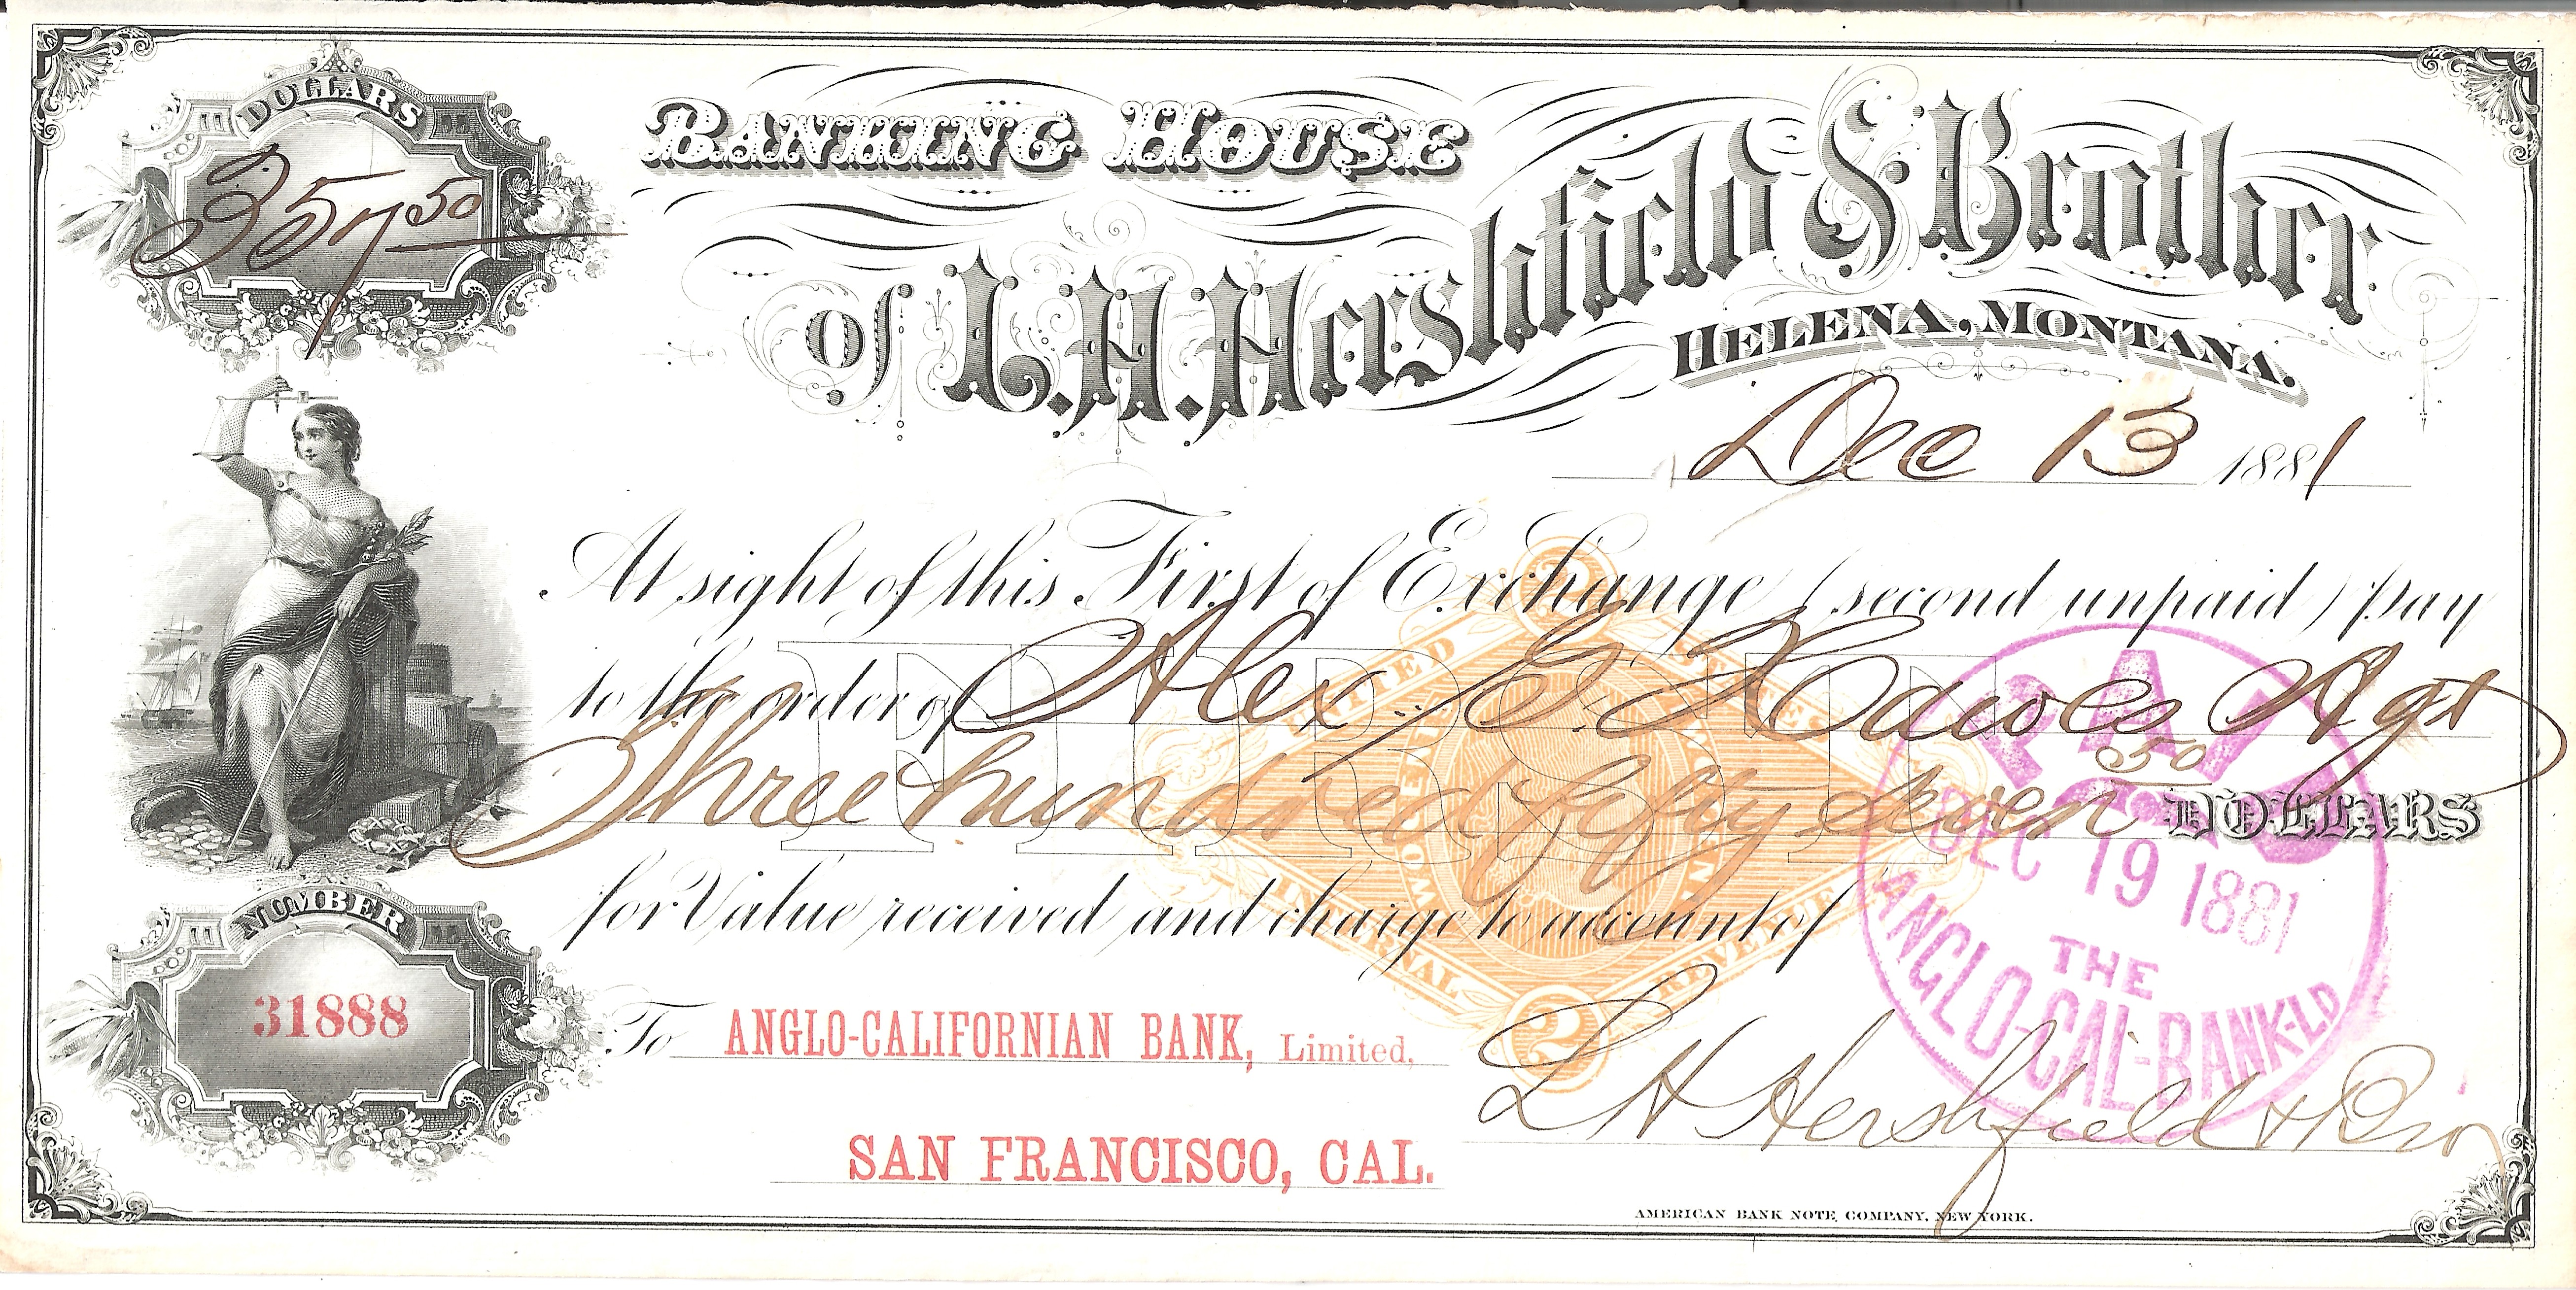 DOLLARS
357 50
BANKING HOUSE
of L.H. Hershfield & Brother
HELENA, MONTANA.
Dec 13 1881
At sight of this First of Exchange (second unpaid) Pay
to the order of Alex. G. Hawes Agt
Three hundred fifty seven 50 DOLLARS
for Value received and charge to account of
FIRST
2
UNITED STATES
INTERNAL REVENUE
2
PAID
DEC 19 1881
THE
ANGLO-CAL-BANK-LD
NUMBER
31888
To ANGLO-CALIFORNIAN BANK, Limited,
SAN FRANCISCO, CAL.
L H Hershfield & Bro
AMERICAN BANK NOTE COMPANY, NEW YORK.